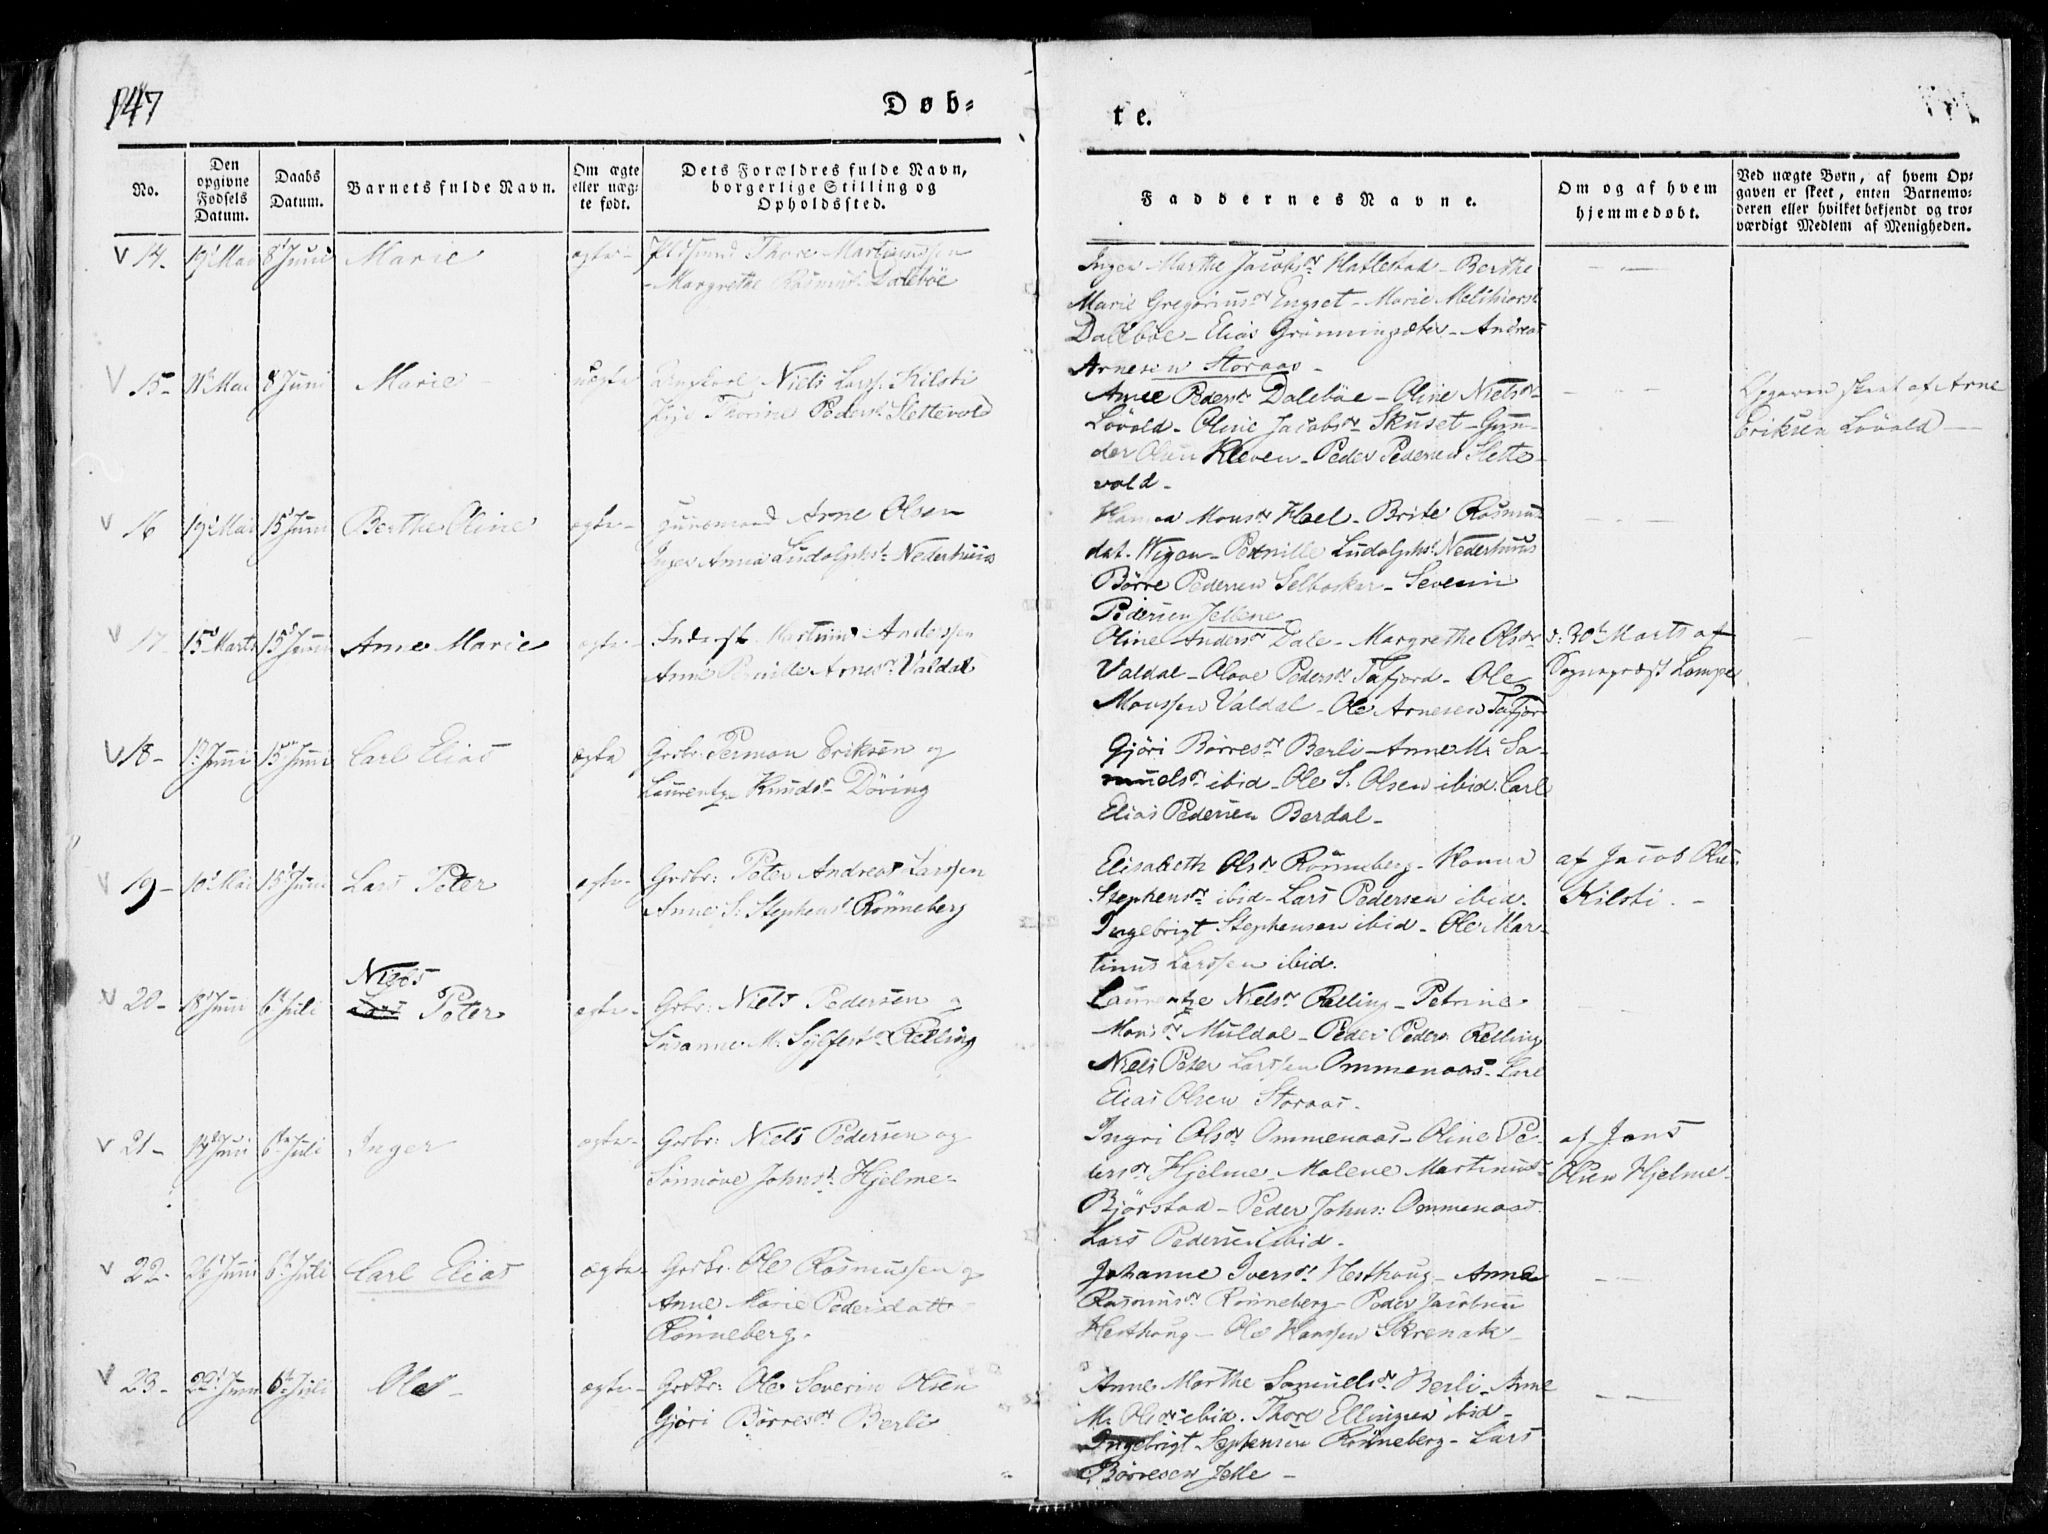 147
Døb-
te.
No.
Den opgivne Fødsels Datum.
Daabs Datum.
Barnets fulde Navn.
Om ægte eller uægte født.
Dets Forældres fulde Navn, borgerlige Stilling og Opholdssted.
Faddernes Navne.
Om og af hvem hjemmedøbt.
Ved uægte Børn, af hvem Opgaven er skeet, enten Barnemoderen eller hvilket bekjendt og troværdigt Medlem af Menigheden.
14. 19 Mai 8 Juni Marie ægte Thore Martinussen
Margrethe Rasmusd. Dalebøe
Inger Marthe Jacobsdr Hatlestad - Berthe
Marie Gregoriusdr Engset - Marie Melchiorsd
Dalebøe - Elias Grønningsæter - Andreas
Arnesen Storaas -
15 - Mai 8 Juni Marie uægte Ungkarl Niels Larss. Kilsti
Pige Thorine Pedersd. Slettevold
Anne Pedersdr Dalebøe - Oline Nielsdr
Løvold - Oline Jacobsdr Skuset - Gun-
der Olsen Kleven - Peder Pedersen Slette-
vold -
Opgaven skeet af Arne
Eriksen Løvold
16 19 Mai 15 Juni Berthe Oline ægte Arne Olsen
Inger Anna Ludolphsd. Nederhuus
Hanna Monsdr Hoel - Brite Rasmus-
dat. Wigen - Pernille Ludolphsd. Nederhuus
Børre Pedersen Selboskar - Severin
Pedersen Jellene
17 15 Marts 15 Juni Anne Marie ægte Inderst. Martinus Anderssen
Anne Pernille Arnesdr. Valdal
Oline Andersdr Dale - Margrethe Olsdr
Valdal - Olave Pedersdr Tafjord - Ole
Monssen Valdal - Ole Arnesen Tafjor
d: 30t Marts af
Sognepræst Lampe
18 - Juni 15 Juni Carl Elias ægte Grbr. Permon Eriksen og
Laurentze Knudsdr Døving
Gjöri Børresdr Berli - Anne M. Sa-
muelsdr ibid - Ole S. Olsen ibid. Carl
Elias Pedersen Berdal -
19 - 10 Mai 15 Juni Lars Peter ægte Grbr: Peter Andreas Larssen
Anne S. Stephensd. Rønneberg
Elisabeth Olsdr Rønneberg - Hanna
Stephensdr ibid - Lars Pedersen ibid.
Ingebrigt Stephensen ibid - Ole Mar-
tinus Larssen ibid.
af Jacob Olsen
Kilsti. -
Niels
20 - 18 Juni 6 Juli Lars Peter ægte Grbr: Niels Pedersen og
Susanne M. Sylfestdr Relling
Laurentze Nielsdr Relling - Petrine
Monsdr Muldal - Peder Peders. Relling
Niels Peter Larssen Ommenaas - Carl
Elias Olsen Storaas.
21 - Juni 6 Juli Inger ægte Grbr: Niels Pedersen og
Sønnøve Johnsd. Hjelme
Ingri Olsdr Ommenaas - Oline Pe-
dersdr Hjelme - Malene Martinus-
Bjørstad - Peder Johns: Ommenaas
Lars Pedersen ibid -
af Jens
Olsen Hjelme
22. 26 Juni 6 Juli Carl Elias ægte Grbr. Ole Rasmussen og
Anne Marie Pedersdatt
Rønneberg.
Johanne Iversdr Hesthoug - Anne
Rasmusdr Rønneberg - Peder Jacobsen
Hesthoug - Ole Hanssen Skrenak
23 - 22 Juni 6 Juli Ole ægte Grbr: Ole Severin Olsen
Gjøri Børresdr Berli
Anne Marthe Samuelsdr Berli - Anne
M. Olsdr ibid. Thore Ellingsen ibid -
Ingebrigt Stephensen Rønneberg - Lars
Børresen Jelle -